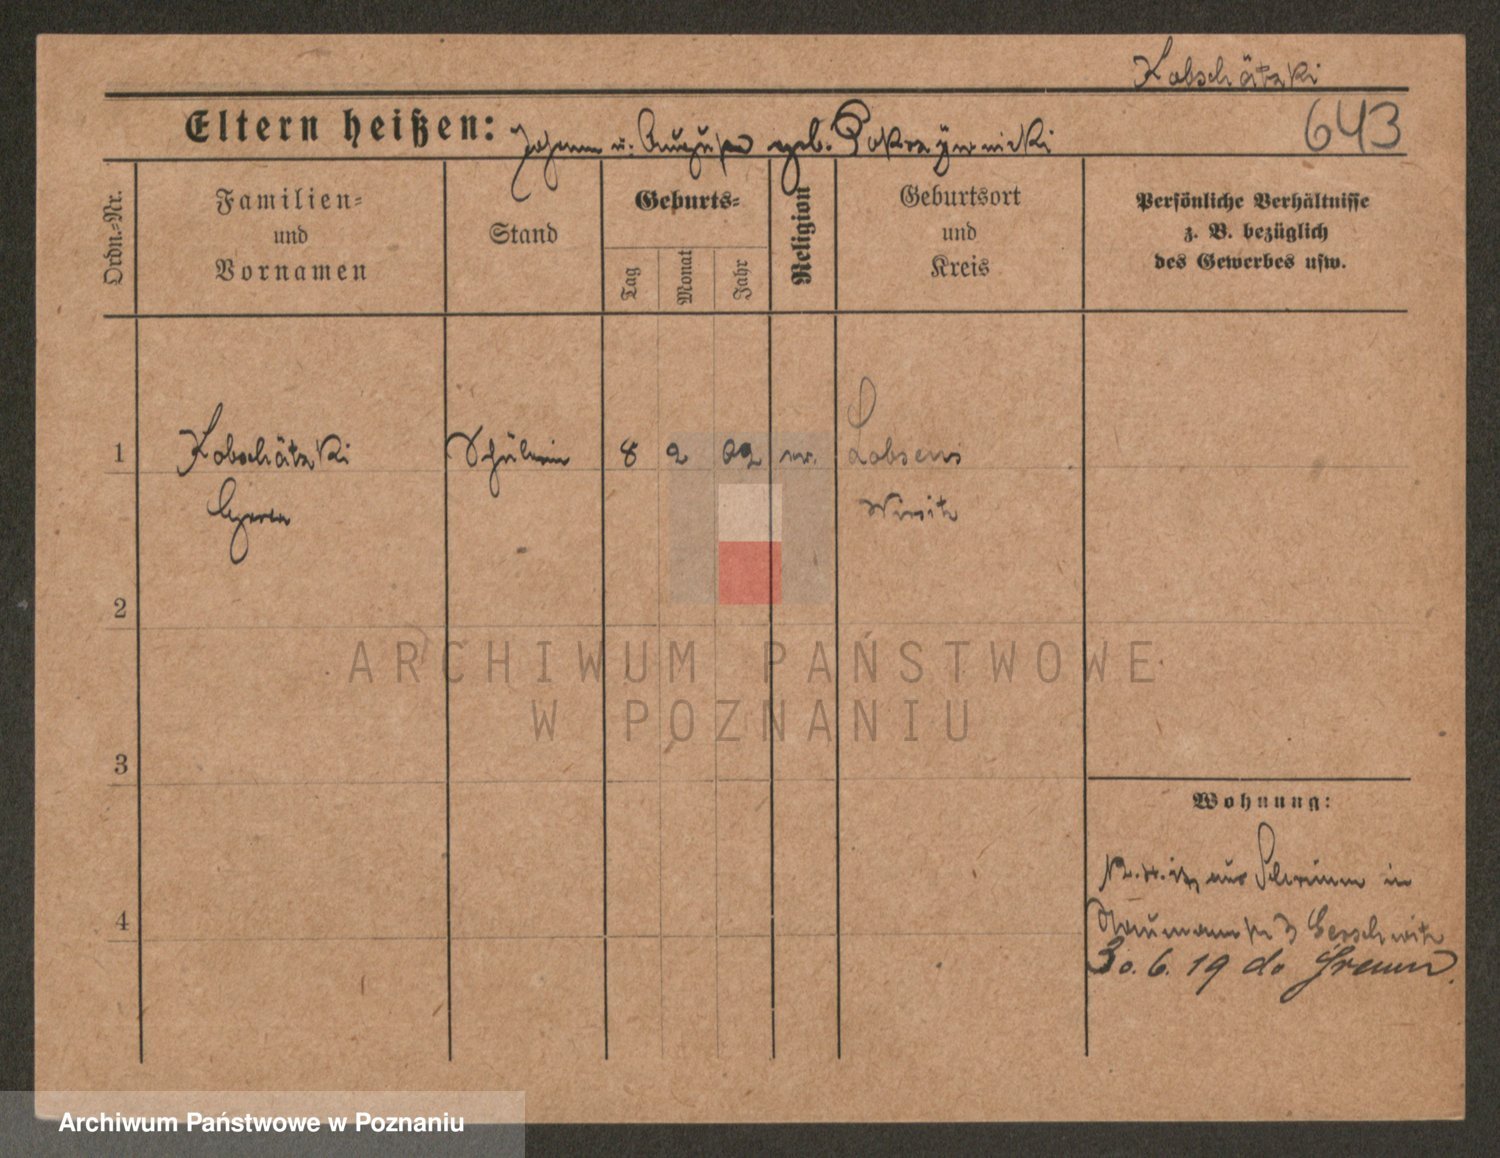 Kobschätzki
643
Eltern heißen: Johann u. Auguste geb. Pokrzywnicki
Ordn.-Nr.
Familien-
und
Vornamen
Stand
Geburts-
Tag
Monat
Jahr
Religion
Geburtsort
und
Kreis
Persönliche Verhältnisse
z. B. bezüglich
des Gewerbes usw.
1
Kobschätzki Schülerin 8 2 02 Lobsens
Wirsitz
2
3
4
Wohnung:
aus Schrimm in
Naumannstr 3
30. 6. 19 do
ARCHIWUM PAŃSTWOWE
W POZNANIU
Archiwum Państwowe w Poznaniu